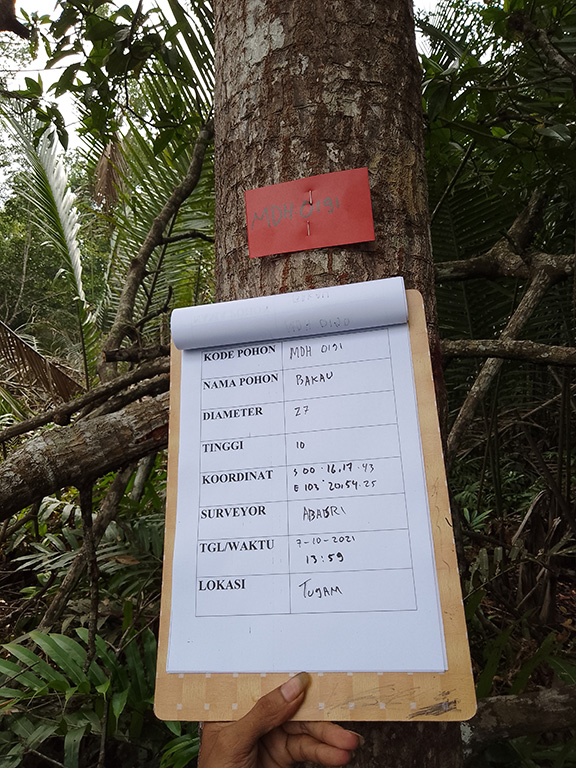 MDH 0191
KODE POHON MDH 0191
NAMA POHON BAKAU
DIAMETER 27
TINGGI 10
KOORDINAT S 00.16.17.43
E 103°20.54.25
SURVEYOR
TGL/WAKTU 7-10-2021
13:59
LOKASI